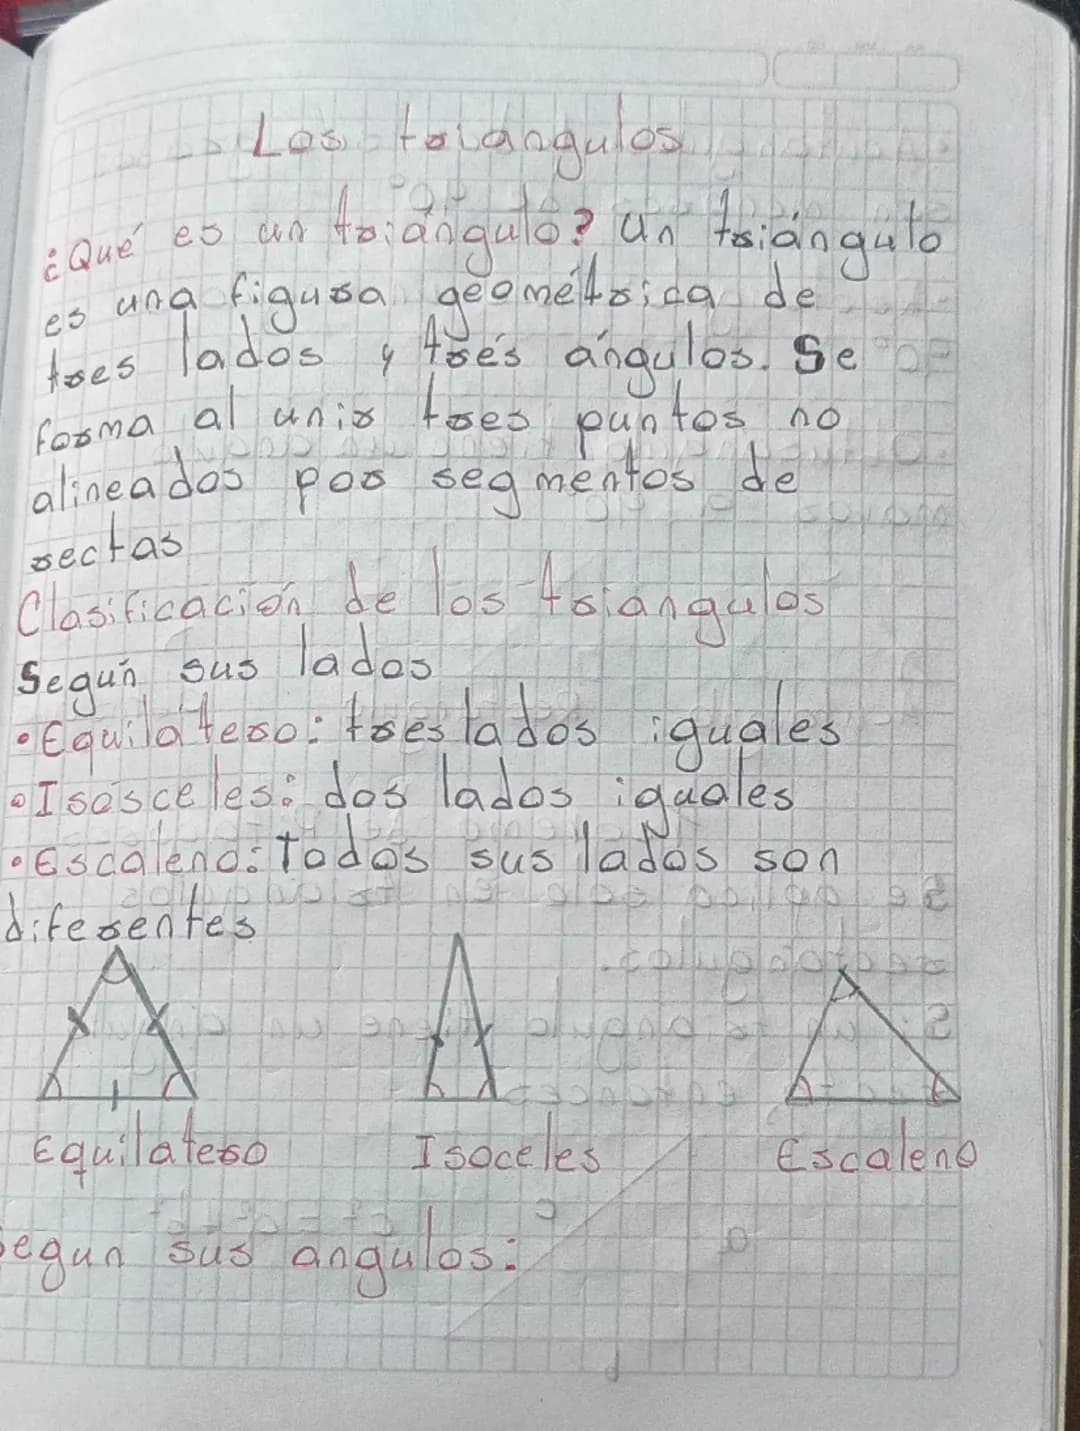 Los triangulos
¿Qué es un triángulo? Un triángulo
es una figura geométrica de
tres lados y trés ángulos. Se
forma al unir tres puntos no
alineados por segmentos de
rectas
Clasificación de los triangulos
Según sus lados
•Equilátero: tres lados iguales
•Isósceles: dos lados iguales
•Escaleno: Todos sus lados son
diferentes
Equilatero Isoceles Escaleno
Segun sus angulos: